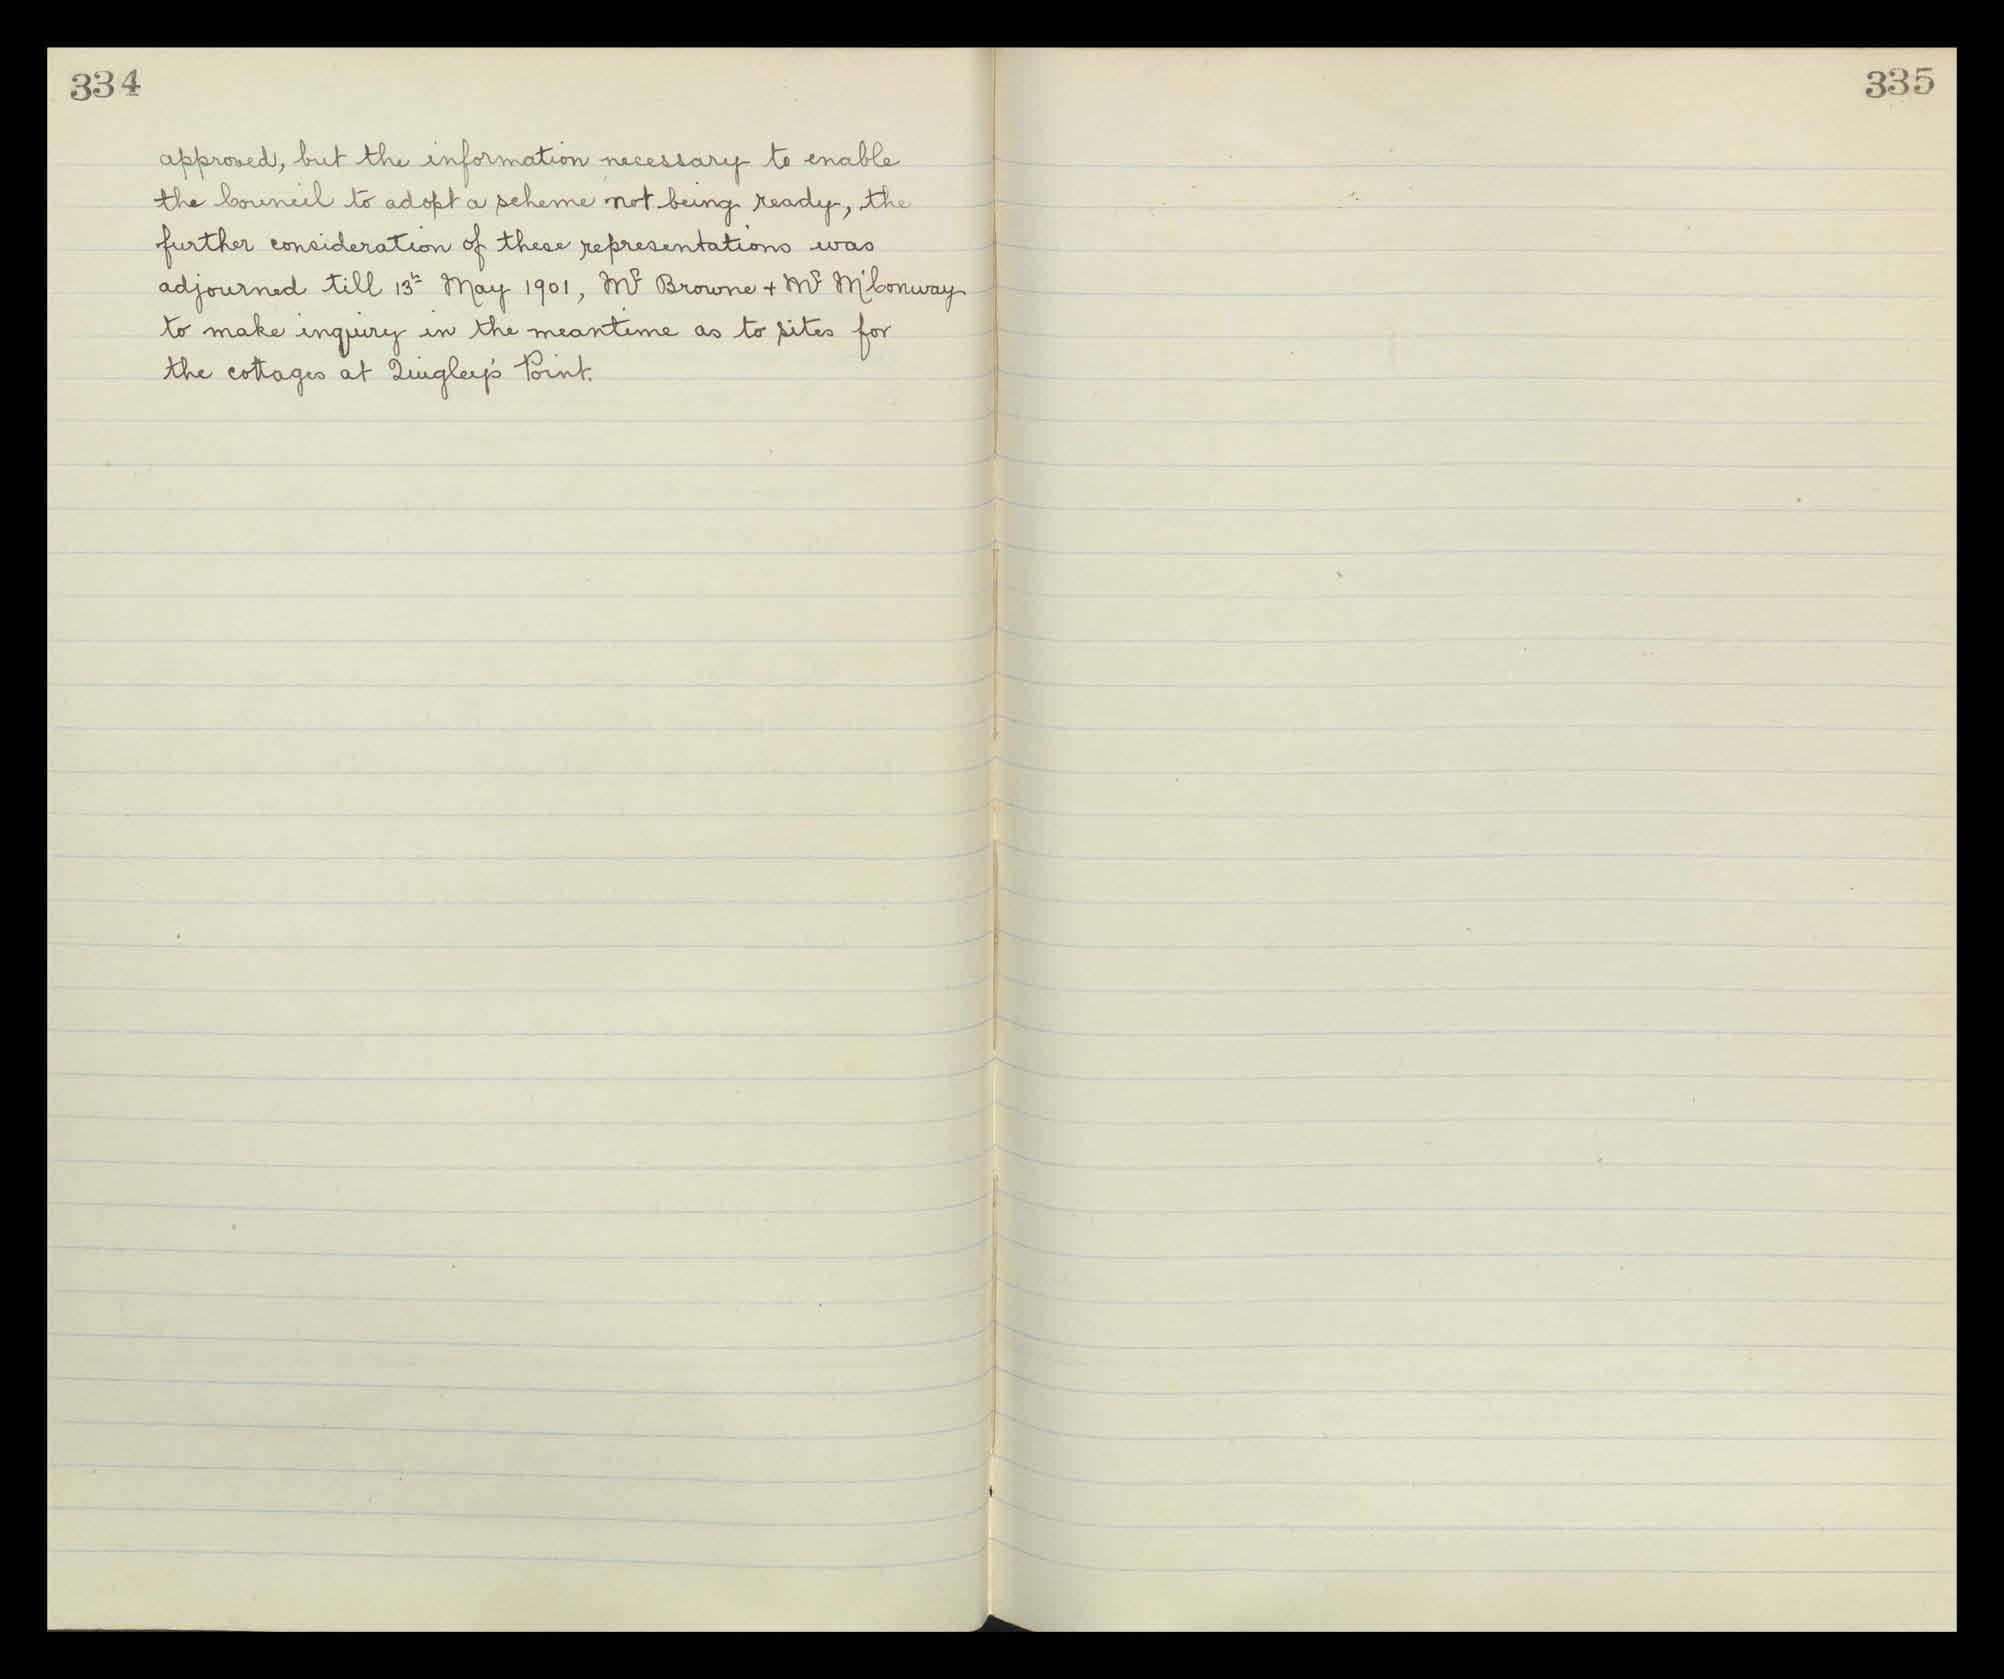 334
approved, but the information necessary to enable
the Council to adopt a scheme not being ready, the
further consideration of these representations was
adjourned till 13th May 1901, Mr Browne + Mr M'Conway
to make inquiry in the meantime as to sites for
the cottages at Quigley's Point.
335